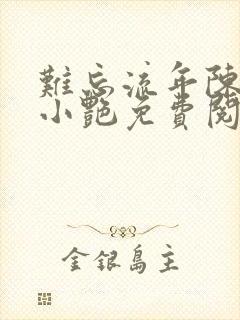 難忘流年陳
小艷免費閱
金銀島主